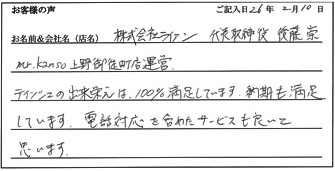 お客様の声 ご記入日26年 2月10日
お名前&会社名(店名) 株式会社ライアン 代表取締役 後藤 崇
Mr.Kanso 上野御徒町店運営.
ティッシュの出来栄えは、100%満足しています。納期も満足
しています。電話対応を含めたサービスも良いと
思います。